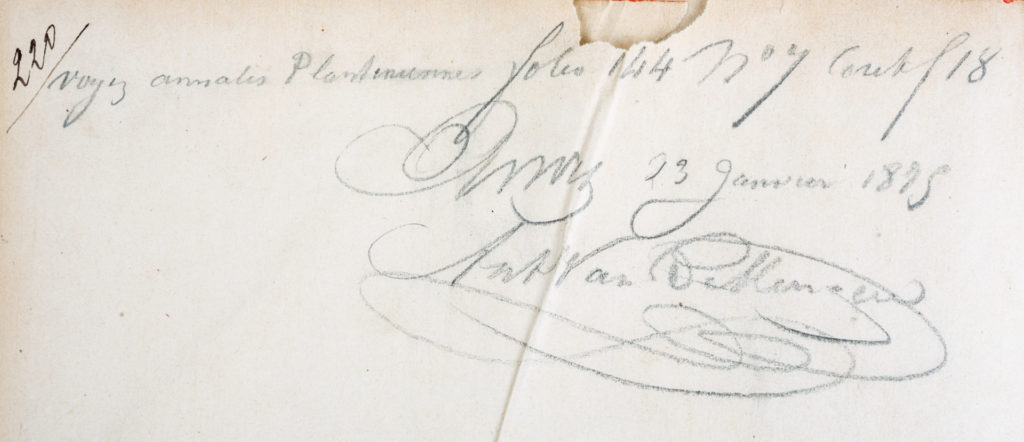 220/
voyez annales Plantiniennes folio 144 No 7 Cout f 18
Anvers 23 Janvier 1895
Ant Van